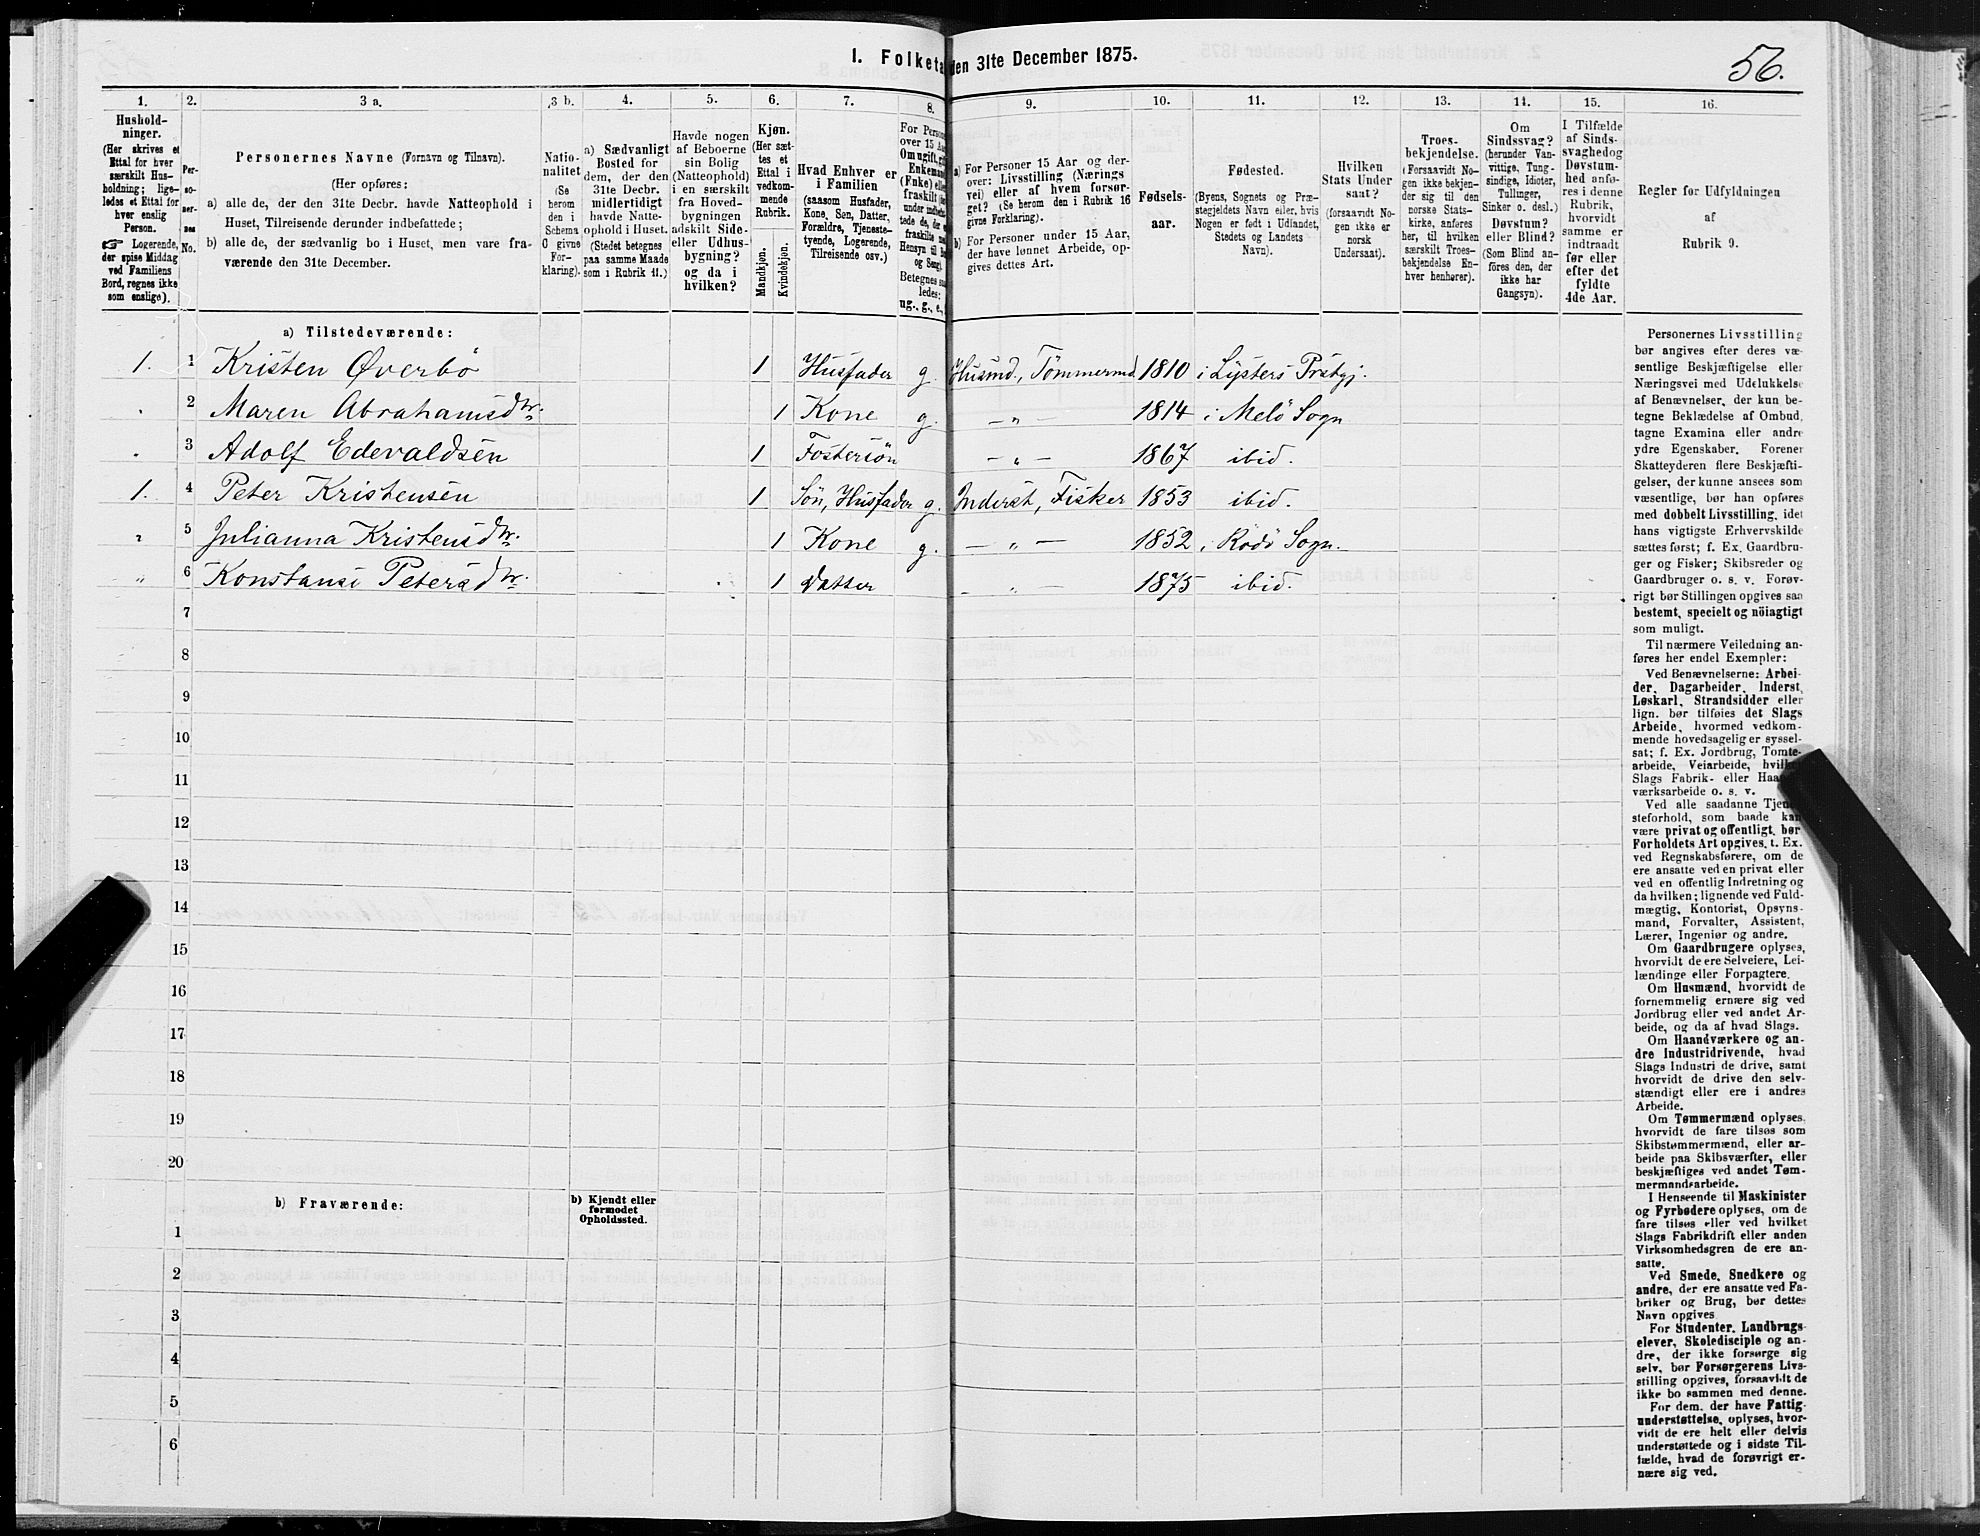 1. Folketa den 31te December 1875.
56.
1.
2.
3 a.
3 b.
4.
5.
6.
7.
8.
9.
10.
11.
12.
13.
14.
15.
16.
Hushold-
ninger.
(Her skrives et
Ettal for hver
særskilt Hus-
holdning; lige-
ledes et Ettal for
hver enslig
Person.
☞ Logerende,
der spise Middag
ved Familiens
Bord, regnes ikke
som enslige).
Per-
so-
ner-
nes
No.
Personernes Navne (Fornavn og Tilnavn).
(Her opføres:
a) alle de, der den 31te Decbr. havde Natteophold i
Huset, Tilreisende derunder indbefattede;
b) alle de, der sædvanlig bo i Huset, men vare fra-
værende den 31te December.
Natio-
nalitet
(Se
herom
den i
Schema
C givne
For-
klaring).
a) Sædvanligt
Bosted for
dem, der den
31te Decbr.
midlertidigt
havde Natte-
ophold i Huset.
(Stedet betegnes
paa samme Maade
som i Rubrik 11.)
Havde nogen
af Beboerne
sin Bolig
(Natteophold)
i en særskilt
fra Hoved-
bygningen
adskilt Side-
eller Udhus-
bygning?
og da i
hvilken?
Kjøn.
(Her sæt-
tes et
Ettal i
vedkom-
mende
Rubrik.
Mandkjøn.
Kvindekjøn.
Hvad Enhver er
i Familien
(saasom Husfader,
Kone, Søn, Datter,
Forældre, Tjeneste-
tyende, Logerende,
Tilreisende osv.)
For Person
over 15 Aa
Om ugift, gif
Enkemand
(Fnke) elle
fraskilt
Betegnes saa
ledes:
ug., g., e.,
a) For Personer 15 Aar og der-
over: Livsstilling (Nærings
vei) eller af hvem forsør-
get? (Se herom den i Rubrik 16
givne Forklaring).
b) For Personer under 15 Aar,
der have lønnet Arbeide, op-
gives dettes Art.
Fødsels-
aar.
Fødested.
(Byens, Sognets og Præ-
stegjeldets Navn eller, hvis
Nogen er født i Udlandet,
Stedets og Landets
Navn).
Hvilken
Stats Under
saat?
(forsaavidt No-
gen ikke er
norsk
Undersaat).
Troes-
bekjendelse.
(Forsaavidt No-
gen ikke bekjen-
der sig til den
norske Stats-
kirke, anføres
her, til hvilken
særskilt Troes-
bekjendelse En-
hver henhører).
Om
Sindssvag?
(herunder Van-
vittige, Tung-
sindige, Idioter,
Tullinger,
Sinker o. desl.)
Døvstum?
eller Blind?
(Som Blind an-
føres den, der
ikke har
Gangsyn).
I Tilfælde
af Sinds-
svaghedog
Døvstum-
hed anfø-
res i denne
Rubrik,
hvorvidt
samme er
indtraadt
før eller
efter det
fyldte
4de Aar.
Regler for Udfyldningen
af
Rubrik 9.
a) Tilstedeværende:
1. 1 Kristen Øverbö 1 Husfader g. Husmd., Tömmermd 1810 i Lysters Prstgj.
" 2 Maren Abrahamsdtr. 1 Kone g. — " — 1814 i Melö Sogn
" 3 Adolf Edevaldsen 1 Fostersön — " — 1867 ibid.
1. 4 Peter Kristensen 1 Sön, Husfader g. Inderst, Fisker 1853 ibid.
" 5 Julianna Kristensdtr. 1 Kone g. — " — 1852 i Rödö Sogn.
" 6 Konstansi Petersdtr. 1 Datter — " — 1875 ibid.
7
8
9
10
11
12
13
14
15
16
17
18
19
20
b) Fraværende:
b) Kjendt eller
formodet
Opholdssted.
1
2
3
4
5
6
Personernes Livsstilling
bør angives efter deres væ-
sentlige Beskjæftigelse eller
Næringsvei med Udelukkelse
af Benævnelser, der kun be-
tegne Beklædelse af Ombud,
tagne Examina eller andre
ydre Egenskaber. Forener
Skatteyderen flere Beskjæfti-
gelser, der kunne ansees som
væsentlige, bør han opføres
med dobbelt Livsstilling, idet
hans vigtigste Erhvervskilde
sættes først; f. Ex. Gaardbru-
ger og Fisker; Skibsreder og
Gaardbruger o. s. v. Forøv-
rigt bør Stillingen opgives saa
bestemt, specielt og nöiagtigt
som muligt.
Til nærmere Veiledning an-
føres her endel Exempler:
Ved Benævnelserne: Arbei-
der, Dagarbeider, Inderst,
Løskarl, Strandsidder eller
lign. bør tilføies det Slags
Arbeide, hvormed vedkom-
mende hovedsagelig er syssel-
sat; f. Ex. Jordbrug, Tomte-
arbeide, Veiarbeide, hvilke
Slags Fabrik- eller Haand-
værksarbeide o. s. v.
Ved alle saadanne Tjene-
steforhold, som baade kan
være privat og offentligt, bør
Forholdets Art opgives, f. Ex.
ved Regnskabsførere, om de
ere ansatte ved en privat eller
ved en offentlig Indretning og
da hvilken; lignende ved Fuld-
mægtig, Kontorist, Opsyns-
mand, Forvalter, Assistent,
Lærer, Ingeniør og andre.
Om Gaardbrugere oplyses,
hvorvidt de ere Selveiere, Lei-
lændinge eller Forpagtere.
Om Husmænd, hvorvidt de
fornemmelig ernære sig ved
Jordbrug eller ved andet Ar-
beide, og da af hvad Slags.
Om Haandværkere og an-
dre Industridrivende, hvad
Slags Industri de drive, samt
hvorvidt de drive den selv-
stændigt eller ere i andres
Arbeide.
Om Tømmermænd oplyses,
hvorvidt de fare tilsøs som
Skibstømmermænd, eller ar-
beide paa Skibsværfter, eller
beskjæftiges ved andet Tøm-
mermandsarbeide.
I Henseende til Maskinister
og Fyrbødere oplyses, om de
fare tilsøs eller ved hvilket
Slags Fabrikdrift eller anden
Virksomhedsgren de ere an-
satte.
Ved Smede, Snedkere og
andre, der ere ansatte ved Fa-
briker og Brug, bør dettes
Navn opgives
For Studenter, Landbrugs-
elever, Skoledisciple og an-
dre, der ikke forsørge sig
selv, bør Forsørgerens Livs-
stilling opgives, forsaavidt de
ikke bo sammen med denne.
For dem, der have Fattig-
understøttelse, oplyses, hvor-
vidt de ere helt eller delvis
understøttede og i sidste Til-
fælde, hvad de forøvrigt er-
nære sig ved.